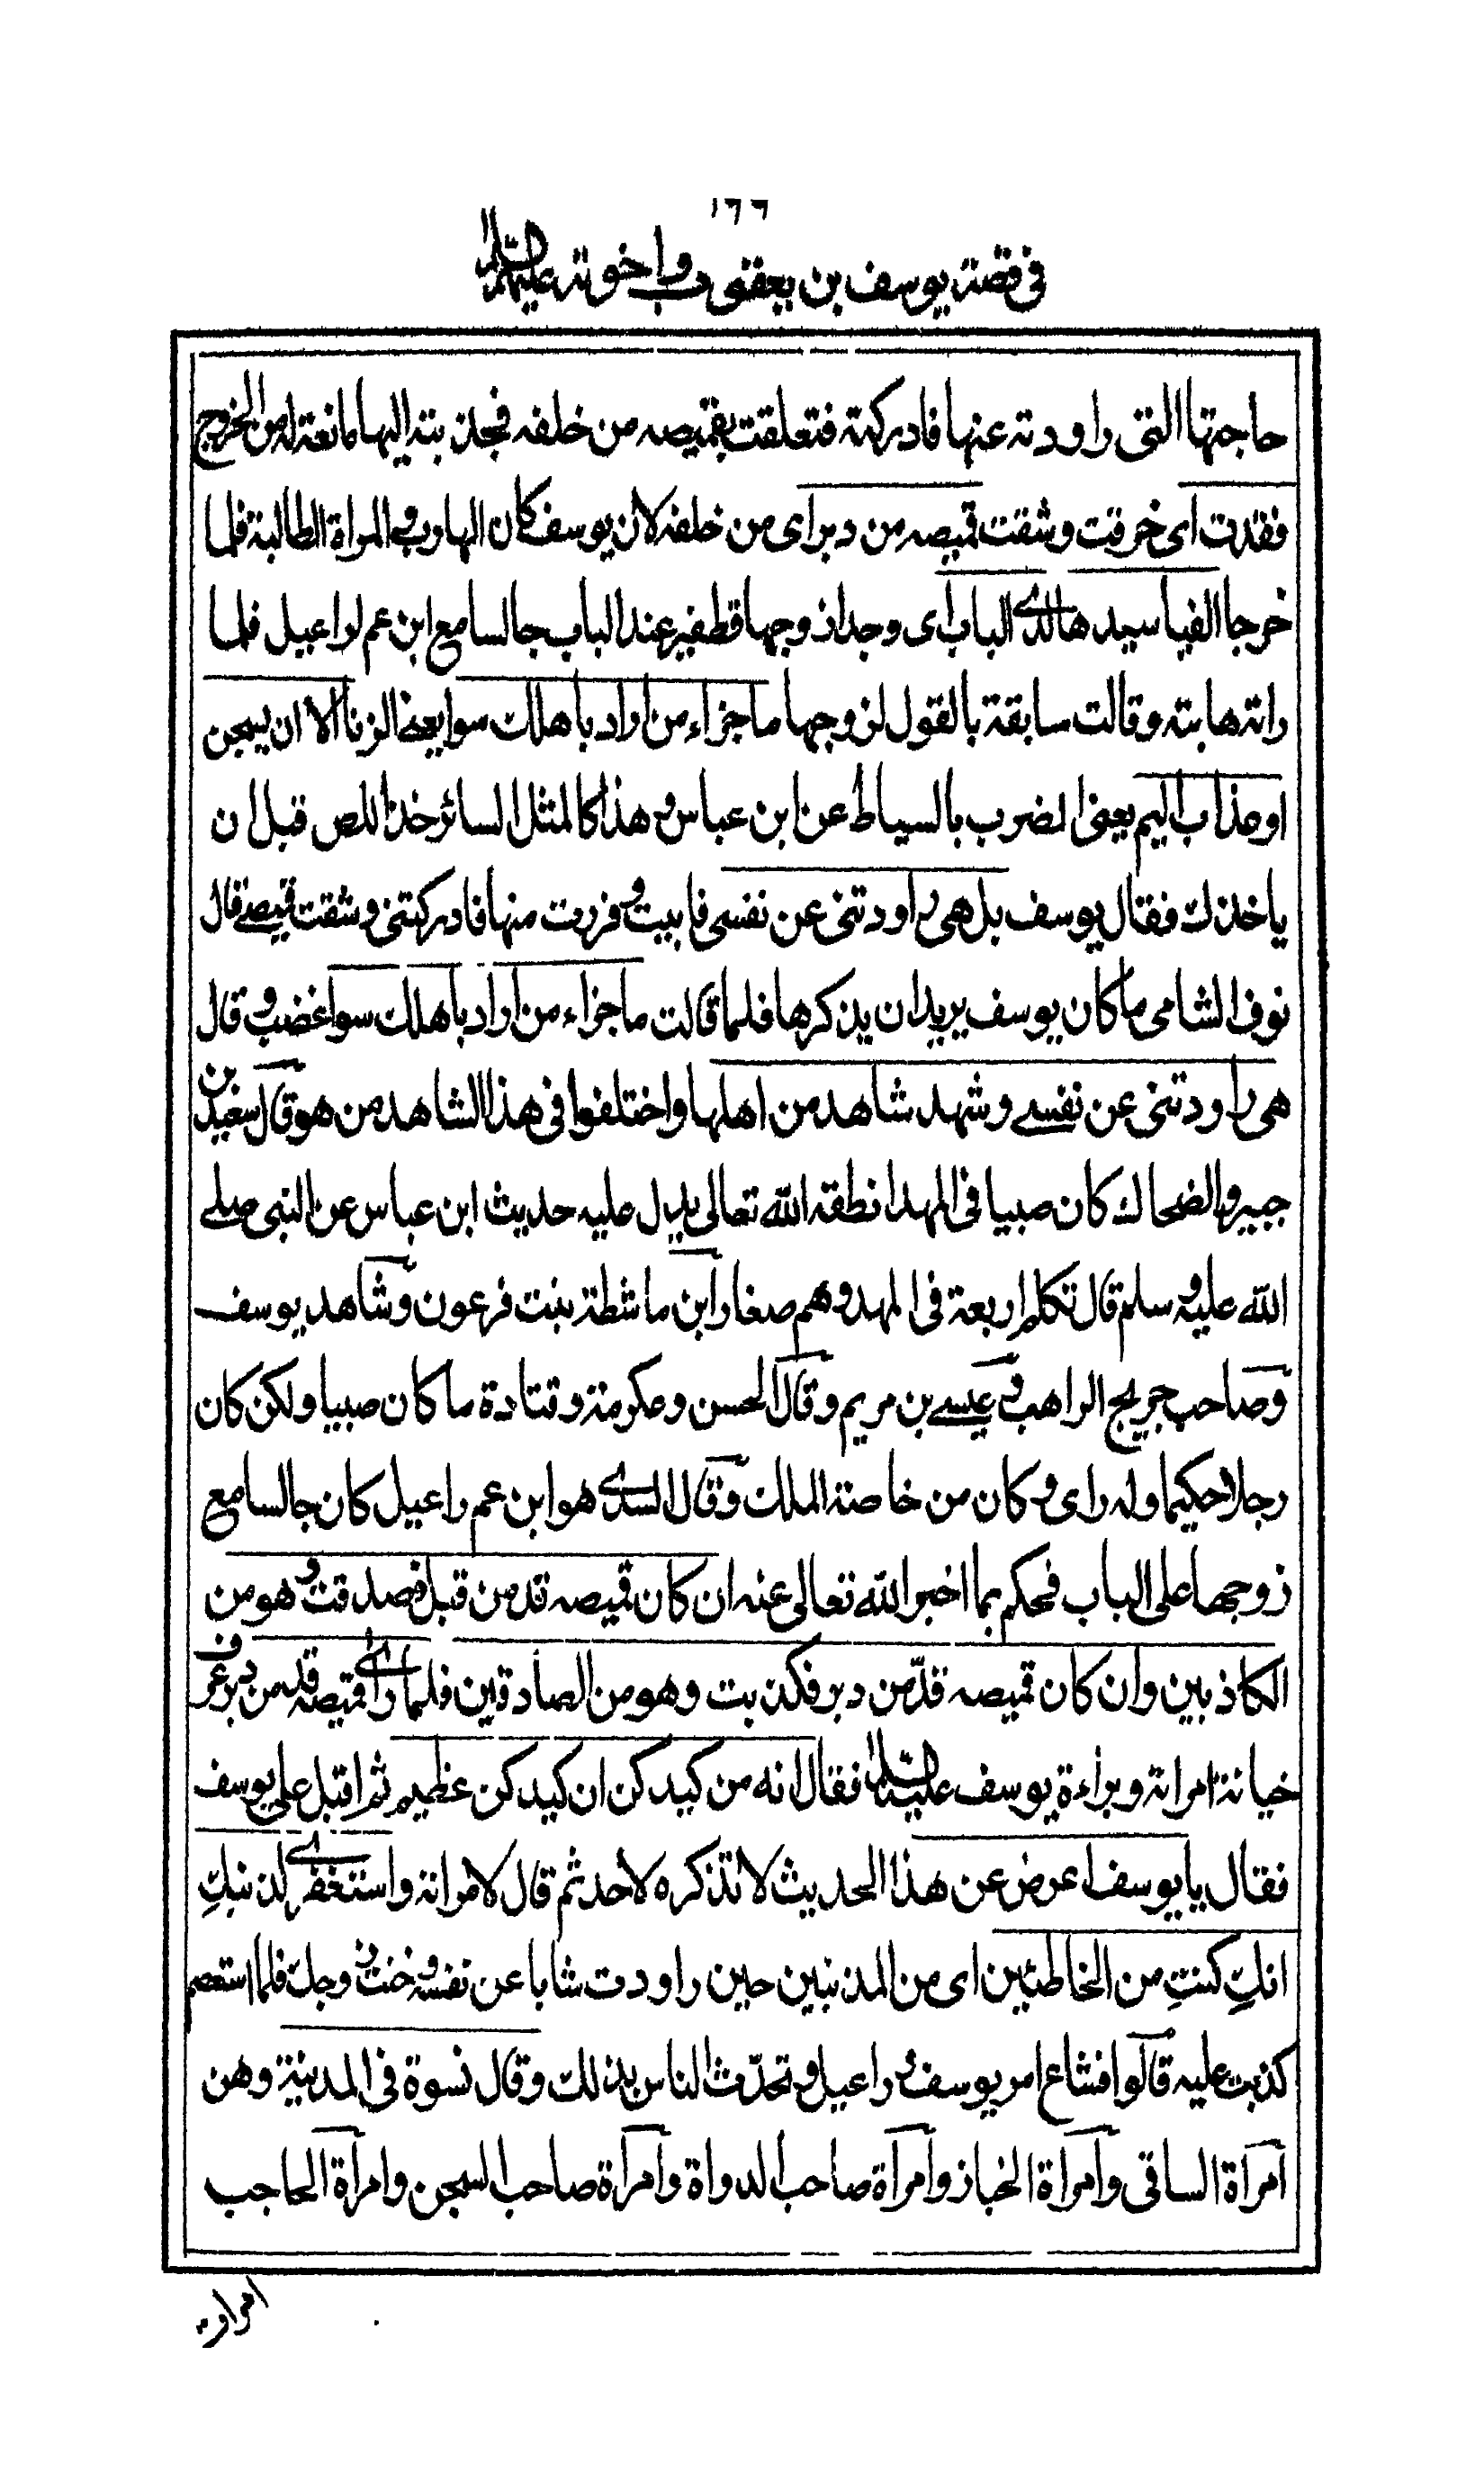 ١٦٦
فى قصة يوسف بن يعقوب واخوته عليهم السلام
حاجتها التى راودته عنها فادركته فتعلقت بقميصه من خلفه فجذبته اليها مانعة له من الخروج
فقدت اى خرقت وشقت قميصه من دبر اى من خلفه لان يوسف كان الهارب والمراة الطالبة فلما
خرجا الفيا سيدها لدى الباب اى وجدا زوجها قطفير عند الباب جالسا مع ابن عم لراعيل فلما
راته هابته وقالت سابقة بالقول لزوجها ما جزاء من اراد باهلك سوا يعنى الزنا الا ان يسجن
او عذاب اليم يعنى الضرب بالسياط عن ابن عباس وهذا كالمثل السائر خذ اللص قبل ان
ياخذك فقال يوسف بل هى راودتنى عن نفسى فابيت وفررت منها فادركتنى وشقت قميصى قال
نوف الشامى ما كان يوسف يريد ان يذكرها فلما قالت ما جزاء من اراد باهلك سوا غضب وقال
هى راودتنى عن نفسى وشهد شاهد من اهلها واختلفوا فى هذا الشاهد من هو قال سعيد بن
جبير والضحاك كان صبيا فى المهد انطقه الله تعالى يدل عليه حديث ابن عباس عن النبى صلى
الله عليه وسلم قال تكلم اربعة فى المهد وهم صغار ابن ماشطة بنت فرعون وشاهد يوسف
وصاحب جريج الراهب وعيسى بن مريم وقال الحسن وعكرمة وقتادة ما كان صبيا ولكن كان
رجلا حكيما وله راى وكان من خاصة الملك وقال السدى هو ابن عم راعيل كان جالسا مع
زوجها على الباب فحكم بما اخبر الله تعالى عنه ان كان قميصه قد من قبل فصدقت وهو من
الكاذبين وان كان قميصه قدّ من دبر فكذبت وهو من الصادقين فلما راى قميصه قد من دبر عرف
خيانة امراته وبراءة يوسف عليه السلام فقال انه من كيدكن ان كيدكن عظيم ثم اقبل على يوسف
فقال يا يوسف اعرض عن هذا الحديث لا تذكره لاحد ثم قال لامراته واستغفرى لذنبكِ
انكِ كنتِ من الخاطئين اى من المذنبين حين راودت شابا عن نفسه وخنت زوجك فلما استعصم
كذبت عليه قالوا فشاع امر يوسف وراعيل وتحدّث الناس بذلك وقال نسوة فى المدينة وهن
امراة الساقى وامراة الخباز وامراة صاحب الدواة وامراة صاحب السجن وامراة الحاجب
امراة